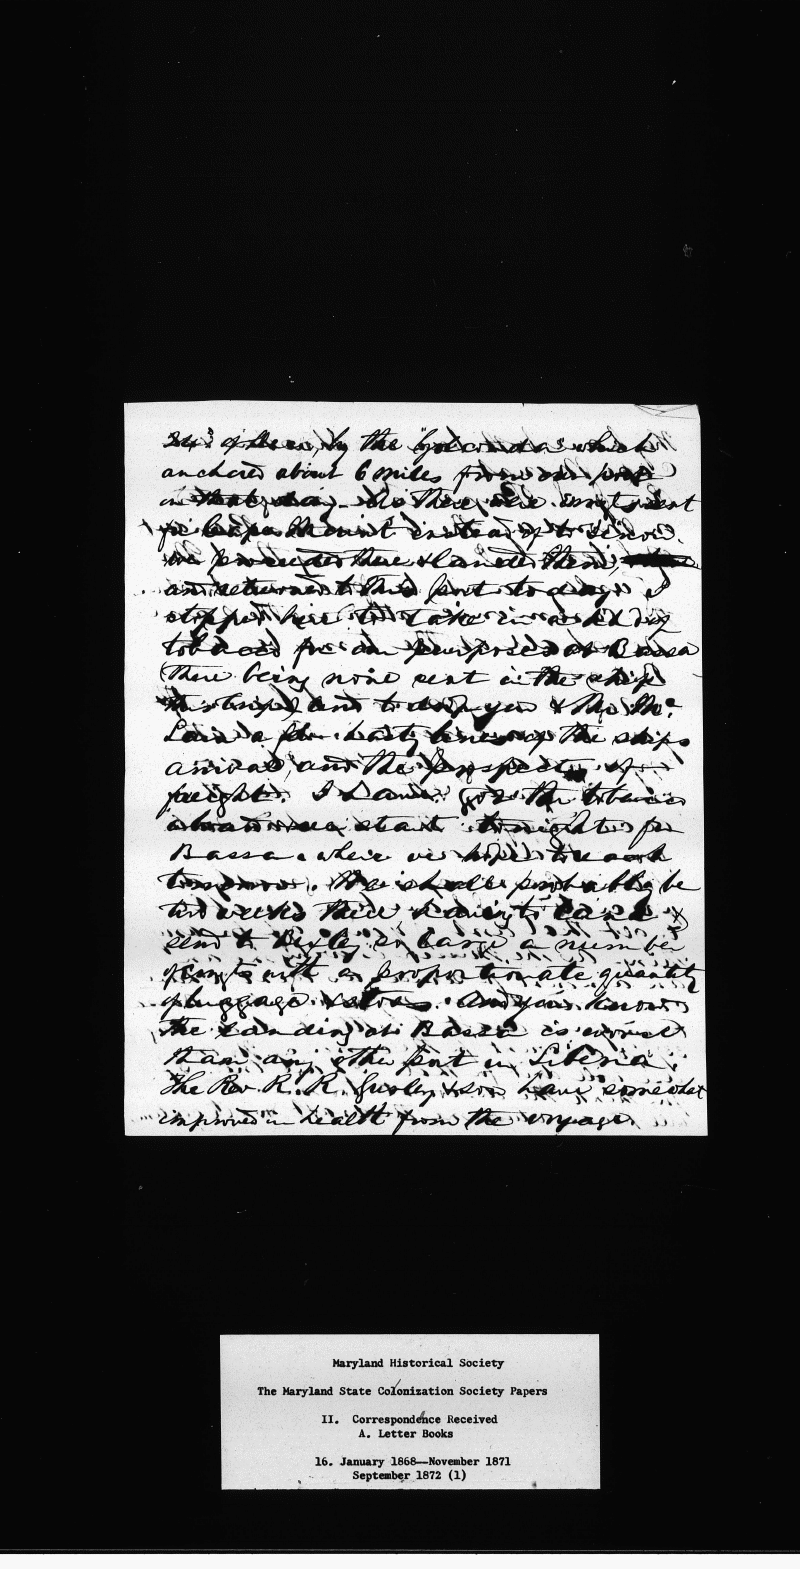 24th of Decem, by the "Golconda" which
anchored about 6 miles from our port
on that day. As there were emigts sent
for Cape Mount instead of to Sinoe
we proceeded there & landed them,
and returned to this port to day. I
stopped here to take in a
tobacco for our purposes at Bassa
(there being none sent in the ship
this trip) and to drop you & Mr. Mc
Lain a few hasty lines of the ships
arrival, and the prospects of
freight. I have got the tobacco
aboard & we start to night for
Bassa. where we hope to reach
tomorrow. We shall probably be
two weeks there having to land &
send to Bexley so large a number
of emigts with a proportionate quantity
of luggage & stores. And you know
the landing at Bassa is worse
than any other port in Liberia.
The Rev. R. R. Gurley & son have somewhat
improved in health from the voyage.
Maryland Historical Society
The Maryland State Colonization Society Papers
II. Correspondence Received
A. Letter Books
16. January 1868--November 1871
September 1872 (1)